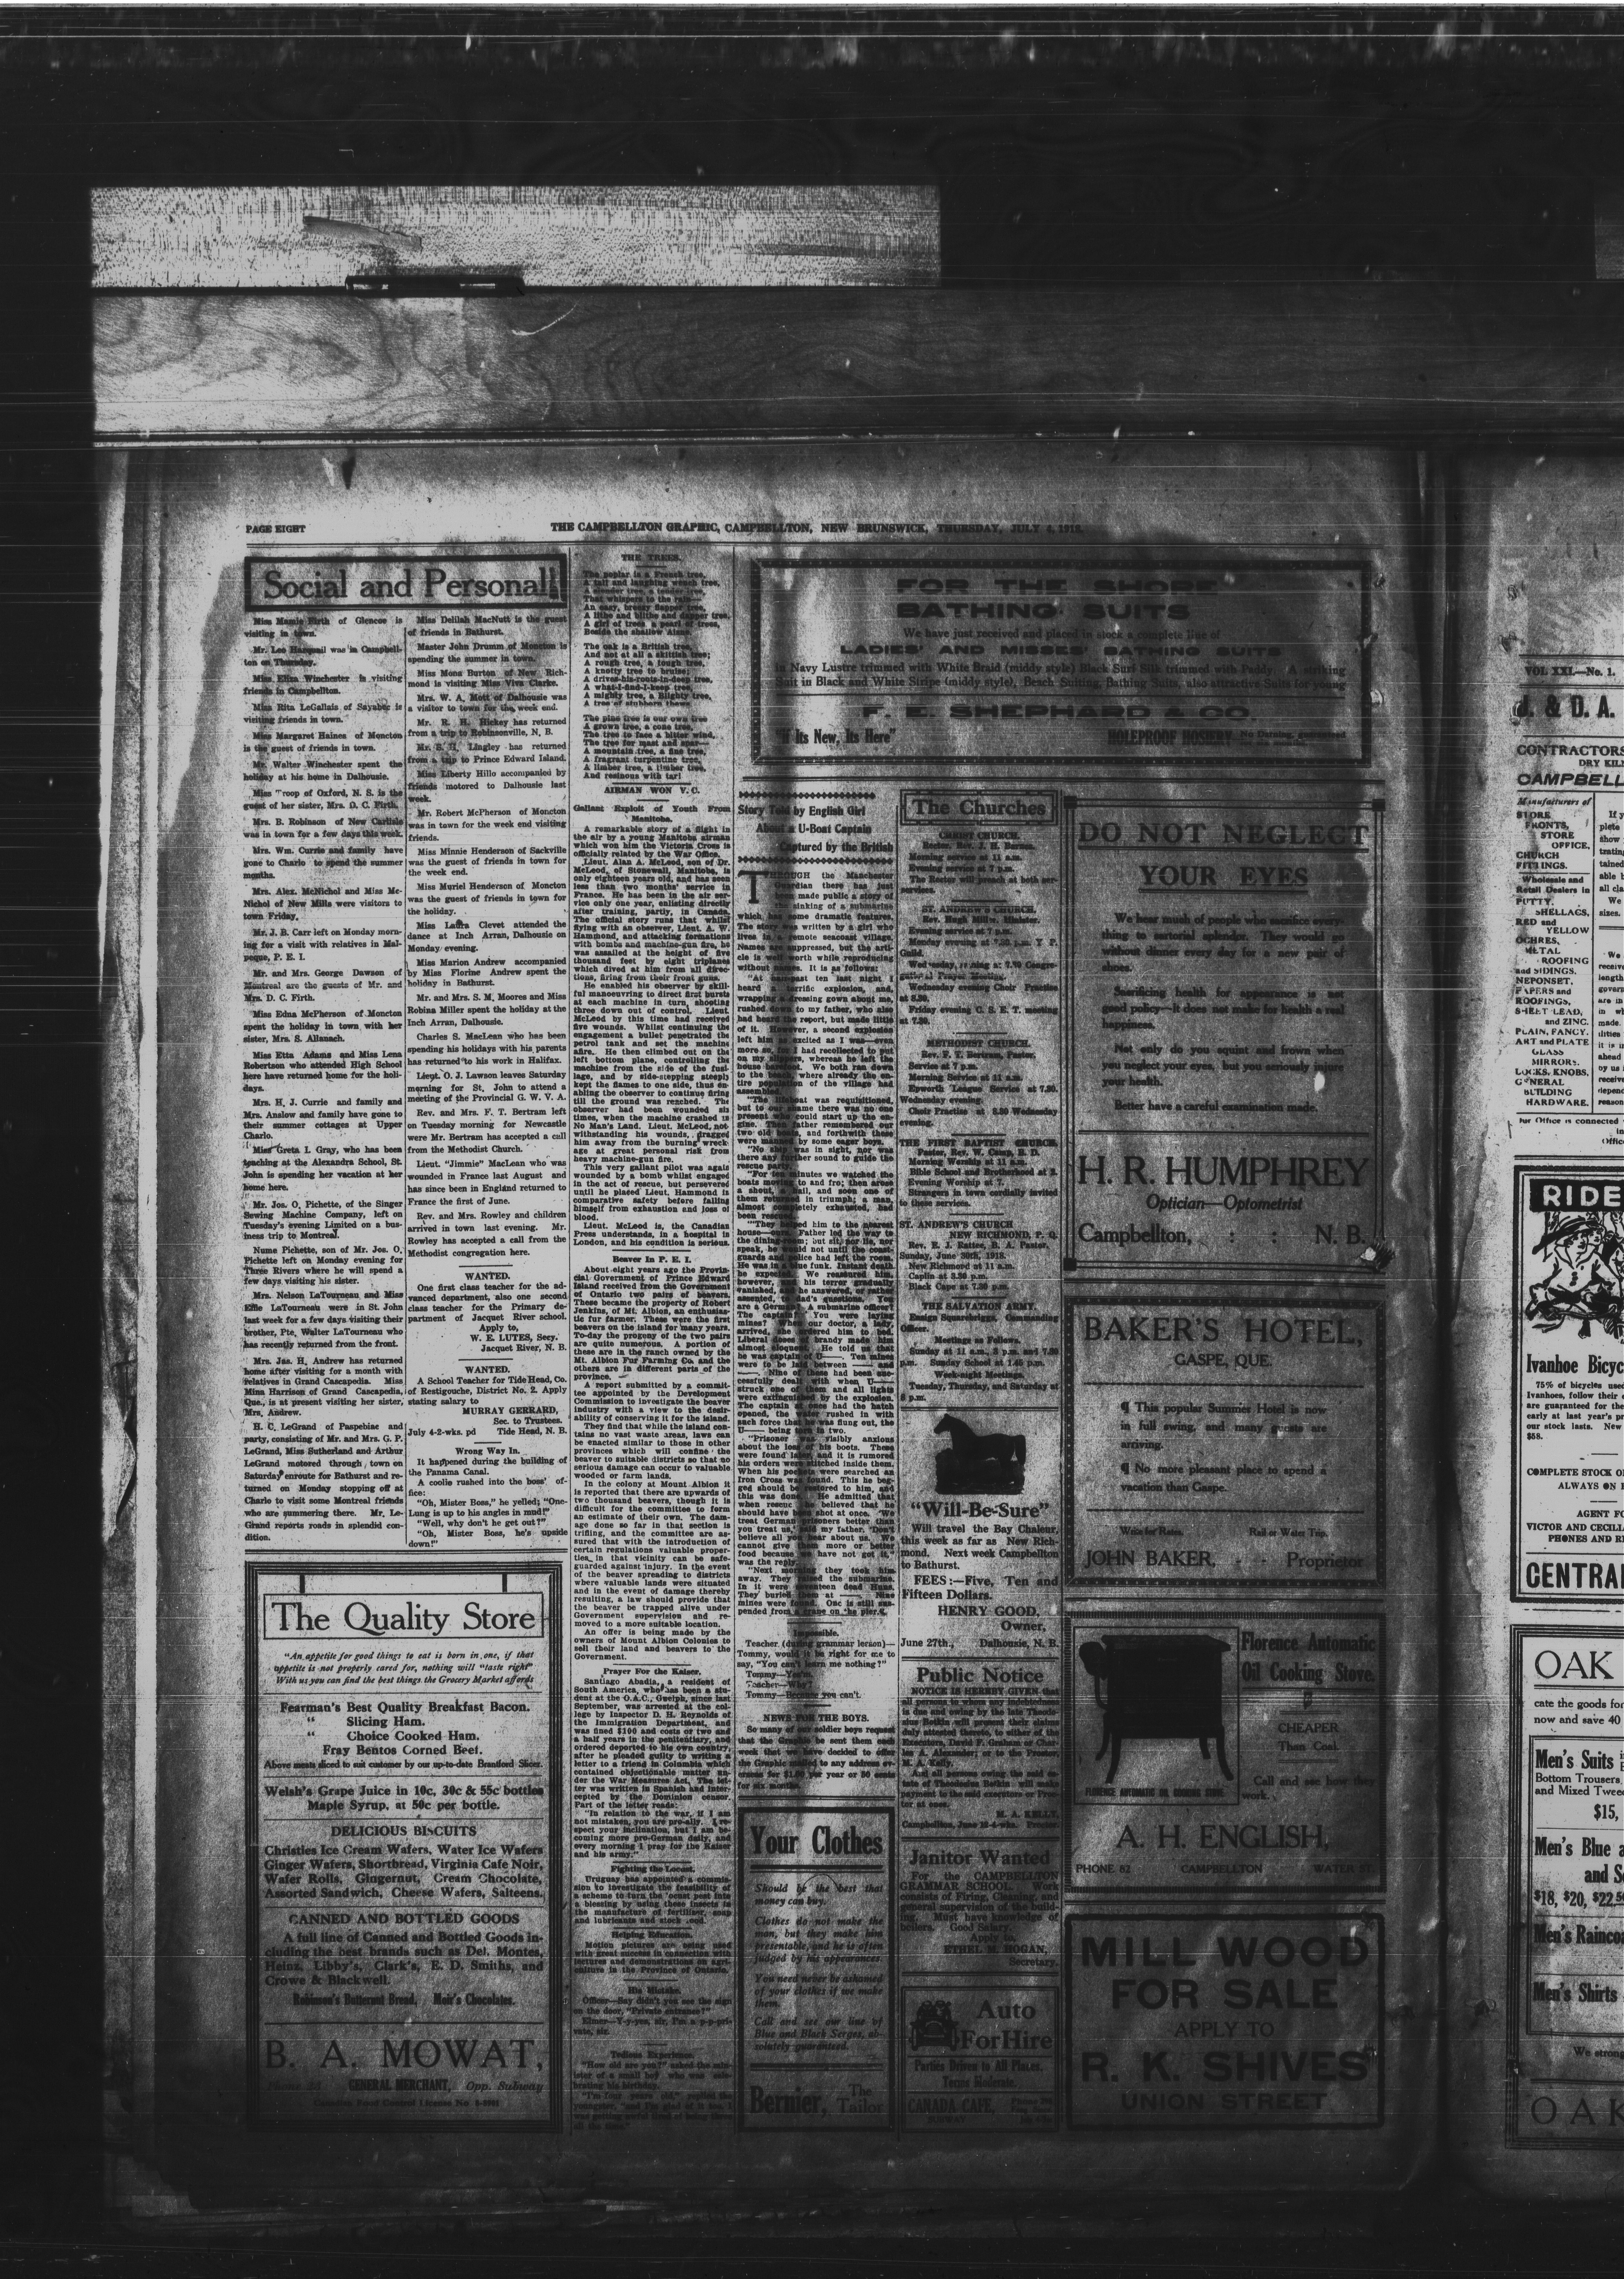 PAGE EIGHT
THE CAMPBELLTON GRAPHIC, CAMPBELLTON, NEW BRUNSWICK, THURSDAY, JULY 4, 1918.
Social and Personal
Miss Mamie Firth of Glencoe is
visiting in town.
Mr. Leo Hacquail was in Campbell-
ton on Thursday.
Miss Eliza Winchester is visiting
friends in Campbellton.
Miss Rita LeGallais of Sayabec is
visiting friends in town.
Miss Margaret Haines of Moncton
is the guest of friends in town.
Mr. Walter Winchester spent the
holiday at his home in Dalhousie.
Miss Troop of Oxford, N. S. is the
guest of her sister, Mrs. D. C. Firth.
Mrs. B. Robinson of New Carlisle
was in town for a few days this week.
Mrs. Wm. Currie and family have
gone to Charlo to spend the summer
months.
Mrs. Alex. McNichol and Miss Mc-
Nichol of New Mills were visitors to
town Friday.
Mr. J. B. Carr left on Monday morn-
ing for a visit with relatives in Mal-
peque, P. E. I.
Mr. and Mrs. George Dawson of
Montreal are the guests of Mr. and
Mrs. D. C. Firth.
Miss Edna McPherson of Moncton
spent the holiday in town with her
sister, Mrs. S. Allanach.
Miss Etta Adams and Miss Lena
Robertson who attended High School
here have returned home for the holi-
days.
Mrs. H. J. Currie and family and
Mrs. Anslow and family have gone to
their summer cottages at Upper
Charlo.
Miss Greta I. Gray, who has been
teaching at the Alexandra School, St.
John is spending her vacation at her
home here.
Mr. Jos. O, Pichette, of the Singer
Sewing Machine Company, left on
Tuesday's evening Limited on a bus-
iness trip to Montreal.
Nume Pichette, son of Mr. Jos. O,
Pichette left on Monday evening for
Three Rivers where he will spend a
few days visiting his sister.
Mrs. Nelson LaTourneau and Miss
Effie LaTourneau were in St. John
last week for a few days visiting their
brother, Pte. Walter LaTourneau who
has recently returned from the front.
Mrs. Jas. H. Andrew has returned
home after visiting for a month with
relatives in Grand Cascapedia. Miss
Mina Harrison of Grand Cascapedia,
Que., is at present visiting her sister,
Mrs. Andrew.
H. C. LeGrand of Paspebiac and
party, consisting of Mr. and Mrs. G. P.
LeGrand, Miss Sutherland and Arthur
LeGrand motored through town on
Saturday enroute for Bathurst and re-
turned on Monday stopping off at
Charlo to visit some Montreal friends
who are summering there. Mr. Le-
Grand reports roads in splendid con-
dition.
Miss Delilah MacNutt is the guest
of friends in Bathurst.
Master John Drumm of Moncton is
spending the summer in town.
Miss Mona Burton of New Rich-
mond is visiting Miss Viva Clarke.
Mrs. W. A. Mott of Dalhousie was
a visitor to town for the week end.
Mr. R. H. Hickey has returned
from a trip to Robinsonville, N. B.
Mr. S. H. Lingley has returned
from a trip to Prince Edward Island.
Miss Liberty Hillo accompanied by
friends motored to Dalhousie last
week.
Mr. Robert McPherson of Moncton
was in town for the week end visiting
friends.
Miss Minnie Henderson of Sackville
was the guest of friends in town for
the week end.
Miss Muriel Henderson of Moncton
was the guest of friends in town for
the holiday.
Miss Laura Clevet attended the
dance at Inch Arran, Dalhousie on
Monday evening.
Miss Marion Andrew accompanied
by Miss Florine Andrew spent the
holiday in Bathurst.
Mr. and Mrs. S. M. Moores and Miss
Robina Miller spent the holiday at the
Inch Arran, Dalhousie.
Charles S. MacLean who has been
spending his holidays with his parents
has returned to his work in Halifax.
Lieut. O. J. Lawson leaves Saturday
morning for St. John to attend a
meeting of the Provincial G. W. V. A.
Rev. and Mrs. F. T. Bertram left
on Tuesday morning for Newcastle
were Mr. Bertram has accepted a call
from the Methodist Church.
Lieut. "Jimmie" MacLean who was
wounded in France last August and
has since been in England returned to
France the first of June.
Rev. and Mrs. Rowley and children
arrived in town last evening. Mr.
Rowley has accepted a call from the
Methodist congregation here.
WANTED.
One first class teacher for the ad-
vanced department, also one second
class teacher for the Primary de-
partment of Jacquet River school.
Apply to,
W. E. LUTES, Secy.
Jacquet River, N. B.
WANTED.
A School Teacher for Tide Head, Co.
of Restigouche, District No. 2. Apply
stating salary to
MURRAY GERRARD,
Sec. to Trustees.
July 4-2-wks. pd Tide Head, N. B.
Wrong Way In.
It happened during the building of
the Panama Canal.
A coolie rushed into the boss' of-
fice:
"Oh, Mister Boss," he yelled; "One-
Lung is up to his angles in mud!"
"Well, why don't he get out?"
"Oh, Mister Boss, he's upside
down!"
The Quality Store
"An appetite for good things to eat is born in one, if that
appetite is not properly cared for, nothing will "taste right"
With us you can find the best things the Grocery Market affords
Fearman's Best Quality Breakfast Bacon.
" Slicing Ham.
" Choice Cooked Ham.
Fray Bentos Corned Beef.
Above meats sliced to suit customer by our up-to-date Brantford Slicer.
Welsh's Grape Juice in 10c, 30c & 55c bottles
Maple Syrup, at 50c per bottle.
DELICIOUS BISCUITS
Christies Ice Cream Wafers, Water Ice Wafers
Ginger Wafers, Shortbread, Virginia Cafe Noir,
Wafer Rolls, Gingernut, Cream Chocolate,
Assorted Sandwich, Cheese Wafers, Salteens,
CANNED AND BOTTLED GOODS
A full line of Canned and Bottled Goods in-
cluding the best brands such as Del. Montes,
Heinz, Libby's, Clark's, E. D. Smiths, and
Crowe & Blackwell.
Robinson's Butternut Bread, Moir's Chocolates.
B. A. MOWAT,
GENERAL MERCHANT, Opp. Subway
THE TREES.
The poplar is a French tree,
A tall and laughing wench tree,
A slender tree, a tender tree,
That whispers to the rain—
An easy, breezy flapper tree,
A lithe and blithe and dapper tree,
A girl of trees, a pearl of trees,
Beside the shallow Aisne.
The oak is a British tree,
And not at all a skittish tree;
A rough tree, a tough tree,
A knotty tree to bruise;
A drives-his-roots-in-deep tree,
A what-I-find-I-keep tree,
A mighty tree, a Blighty tree,
A tree of stubborn thews
The pine tree is our own tree
A grown tree, a cone tree,
The tree to face a bitter wind,
The tree for mast and spar—
A mountain tree, a fine tree,
A fragrant turpentine tree,
A limber tree, a timber tree,
And resinous with tar!
AIRMAN WON V. C.
Gallant Exploit of Youth From
Manitoba.
A remarkable story of a fight in
the air by a young Manitoba airman
which won him the Victoria Cross is
officially related by the War Office.
Lieut. Alan A. McLeod, son of Dr.
McLeod, of Stonewall, Manitoba, is
only eighteen years old, and has seen
less than two months' service in
France. He has been in the air ser-
vice only one year, enlisting directly
after training, partly, in Canada.
The official story runs that whilst
flying with an observer, Lieut. A. W.
Hammond, and attacking formations
with bombs and machine-gun fire, he
was assailed at the height of five
thousand feet by eight triplanes
which dived at him from all direc-
tions, firing from their front guns.
He enabled his observer by skill-
ful manoeuvring to direct first bursts
at each machine in turn, shooting
three down out of control. Lieut.
McLeod by this time had received
five wounds. Whilst continuing the
engagement a bullet penetrated the
petrol tank and set the machine
afire. He then climbed out on the
left bottom plane, controlling the
machine from the side of the fusi-
lage, and by side-stepping steeply
kept the flames to one side, thus en-
abling the observer to continue firing
till the ground was reached. The
observer had been wounded six
times, when the machine crashed in
No Man's Land. Lieut. McLeod, not
withstanding his wounds, dragged
him away from the burning wreck-
age at great personal risk from
heavy machine-gun fire.
This very gallant pilot was again
wounded by a bomb whilst engaged
in the act of rescue, but persevered
until he placed Lieut. Hammond in
comparative safety before falling
himself from exhaustion and loss of
blood.
Lieut. McLeod is, the Canadian
Press understands, in a hospital in
London, and his condition is serious.
Beaver In P. E. I.
About eight years ago the Provin-
cial Government of Prince Edward
Island received from the Government
of Ontario two pairs of beavers.
These became the property of Robert
Jenkins, of Mt. Albion, an enthusias-
tic fur farmer. These were the first
beavers on the island for many years.
To-day the progeny of the two pairs
are quite numerous. A portion of
these are in the ranch owned by the
Mt. Albion Fur Farming Co. and the
others are in different parts of the
province.
A report submitted by a commit-
tee appointed by the Development
Commission to investigate the beaver
industry with a view to the desir-
ability of conserving it for the island.
They find that while the island con-
tains no vast waste areas, laws can
be enacted similar to those in other
provinces which will confine the
beaver to suitable districts so that no
serious damage can occur to valuable
wooded or farm lands.
In the colony at Mount Albion it
is reported that there are upwards of
two thousand beavers, though it is
difficult for the committee to form
an estimate of their own. The dam-
age done so far in that section is
trifling, and the committee are as-
sured that with the introduction of
certain regulations valuable proper-
ties in that vicinity can be safe-
guarded against injury. In the event
of the beaver spreading to districts
where valuable lands were situated
and in the event of damage thereby
resulting, a law should provide that
the beaver be trapped alive under
Government supervision and re-
moved to a more suitable location.
An offer is being made by the
owners of Mount Albion Colonies to
sell their land and beavers to the
Government.
Prayer For the Kaiser.
Santiago Abadia, a resident of
South America, who has been a stu-
dent at the O.A.C., Guelph, since last
September, was arrested at the col-
lege by Inspector D. H. Reynolds of
the Immigration Department, and
was fined $100 and costs or two and
a half years in the penitentiary, and
ordered deported to his own country,
after he pleaded guilty to writing a
letter to a friend in Columbia which
contained objectionable matter un-
der the War Measures Act. The let-
ter was written in Spanish and inter-
cepted by the Dominion censor.
Part of the letter reads:
"In relation to the war, if I am
not mistaken, you are pro-ally. I re-
spect your inclination, but I am be-
coming more pro-German daily, and
every morning I pray for the Kaiser
and his army."
Fighting the Locust.
Uruguay has appointed a commis-
sion to investigate the feasibility of
a scheme to turn the locust pest into
a blessing by using these insects in
the manufacture of fertilizer, soap
and lubricants and stock food.
Helping Education.
Motion pictures are being used
with great success in connection with
lectures and demonstrations on agri-
culture in the Province of Ontario.
His Mistake.
Officer—Say didn't you see the sign
on the door, "Private entrance?"
Elmer—Y-y-yes, sir, I'm a p-p-pri-
vate, sir.
Tedious Experience.
"How old are you?" asked the min-
ister of a small boy who was cele-
brating his birthday.
"I'm four years old," replied the
FOR THE SHORE
BATHING SUITS
We have just received and placed in stock a complete line of
LADIES' AND MISSES' BATHING SUITS
in Navy Lustre trimmed with White Braid (middy style) Black Surf Silk trimmed with Paddy. A striking
Suit in Black and White Stripe (middy style), Beach Suiting, Bathing Suits, also attractive Suits for young
F. E. SHEPHARD & CO.
"If Its New, Its Here"
HOLEPROOF HOSIERY
Story Told by English Girl
About a U-Boat Captain
Captured by the British
THROUGH the Manchester
Guardian there has just
been made public a story of
the sinking of a submarine
which has some dramatic features.
The story was written by a girl who
lives in a remote seacoast village.
Names are suppressed, but the arti-
cle is well worth while reproducing
without names. It is as follows:
"At half-past ten last night I
heard a terrific explosion, and,
wrapping a dressing gown about me,
rushed down to my father, who also
had heard the report, but made little
of it. However, a second explosion
left him as excited as I was—even
more so, for I had recollected to put
on my slippers, whereas he left the
house barefoot. We both ran down
to the beach, where already the en-
tire population of the village had
assembled.
"The lifeboat was requisitioned,
but to our shame there was no one
present who could start up the en-
gine. Then father remembered our
two old boats, and forthwith these
were manned by some eager boys.
"No ship was in sight, nor was
there any further sound to guide the
rescue party.
"For ten minutes we watched the
boats moving to and fro; then arose
a shout, a hail, and soon one of
them returned in triumph; a man,
almost completely exhausted, had
been rescued.
"They helped him to the nearest
house—ours. Father led the way to
the dining-room; but sit, nor lie, nor
speak, he would not until the coast-
guards and police had left the room.
He was in a blue funk. Instant death
he expected. We reassured him,
however, and his terror gradually
vanished, and he answered, or rather
assented, to dad's questions. 'You
are a German? A submarine officer?
The captain? You were laying
mines?' When our doctor, a lady,
arrived, she ordered him to bed.
Liberal doses of brandy made him
almost eloquent. He told us that
he was captain of U——. Ten mines
were to be laid between —— and
——. Nine of these had been suc-
cessfully dealt with when U——
struck one of them and all lights
were extinguished by the explosion.
The captain at once had the hatch
opened, the water rushed in with
such force that he was flung out, the
U—— being torn in two.
"Prisoner was visibly anxious
about the loss of his boots. These
were found later, and it is rumored
his orders were stitched inside them.
When his pockets were searched an
Iron Cross was found. This he beg-
ged should be restored to him, and
this was done. He admitted that
when rescued he believed that he
should have been shot at once. 'We
treat German prisoners better than
you treat us,' said my father, 'Don't
believe all you hear about us. We
cannot give them more or better
food because we have not got it,'
was the reply.
"Next morning they took him
away. They raised the submarine.
In it were seventeen dead Huns.
They buried them at ——. Nine
mines were found. One is still sus-
pended from a crane on the pier."
Impossible.
Teacher (during grammar lesson)—
Tommy, would it be right for me to
say, "You can't learn me nothing?"
Tommy—Yes'm.
Teacher—Why?
Tommy—Because you can't.
NEWS FOR THE BOYS.
So many of our soldier boys request
that the Graphic be sent them each
week that we have decided to offer
the Graphic mailed to any address ov-
erseas for $1.00 per year or 50 cents
for six months.
Your Clothes
Should be the best that
money can buy.
Clothes do not make the
man, but they make him
presentable, and he is often
judged by his appearances.
You need never be ashamed
of your clothes if we make
them.
Call and see our line of
Blue and Black Serges, ab-
solutely guaranteed.
Bernier, The Tailor
The Churches
CHRIST CHURCH.
Rector, Rev. J. H. Barnes.
Morning service at 11 a.m.
Evening service at 7 p.m.
The Rector will preach at both ser-
vices.
ST. ANDREW'S CHURCH.
Rev. Hugh Miller, Minister.
Evening service at 7 p.m.
Monday evening at 7.30 p.m. Y P.
Guild.
Wednesday evening at 7.30 Congre-
gational Prayer Meeting.
Wednesday evening Choir Practise
at 8.30.
Friday evening C. S. E. T. meeting
at 7.30.
METHODIST CHURCH.
Rev. F. T. Bertram, Pastor.
Service at 7 p.m.
Morning Service at 11 a.m.
Epworth League Service at 7.30.
Wednesday evening.
Choir Practise at 8.30 Wednesday
evening.
THE FIRST BAPTIST CHURCH.
Pastor, Rev. W. Camp, B. D.
Morning Worship at 11 a.m.
Bible School and Brotherhood at 2.
Evening Worship at 7.
Strangers in town cordially invited
to these services.
ST. ANDREW'S CHURCH
NEW RICHMOND, P. Q.
Rev. E. J. Rattee, B. A. Pastor.
Sunday, June 30th, 1918.
New Richmond at 11 a.m.
Caplin at 3.30 p.m.
Black Cape at 7.30 p.m.
THE SALVATION ARMY.
Ensign Squarebriggs, Commanding
Officer.
Meetings as Follows.
Sunday at 11 a.m., 3 p.m. and 7.30
p.m. Sunday School at 1.45 p.m.
Week-night Meetings.
Tuesday, Thursday, and Saturday at
8 p.m.
"Will-Be-Sure"
Will travel the Bay Chaleur,
this week as far as New Rich-
mond. Next week Campbellton
to Bathurst.
FEES:—Five, Ten and
Fifteen Dollars.
HENRY GOOD,
Owner,
June 27th., Dalhousie, N. B.
Public Notice
NOTICE IS HEREBY GIVEN that
all persons to whom any indebtedness
is due and owing by the late Theodo-
sius Botkin will present their claims
duly attested thereto, to either of the
Executors, David F. Graham or Char-
les A. Alexander; or to the Proctor,
M. A. Kelly.
And all persons owing the said es-
tate of Theodosius Botkin will make
payment to the said executors or Proc-
tor at once.
M. A. KELLY,
Campbellton, June 12-4-wks. Proctor.
Janitor Wanted
For the CAMPBELLTON
GRAMMAR SCHOOL. Work
consists of Firing, Cleaning, and
general supervision of the build-
ing. Must have knowledge of
boilers. Good Salary.
Apply to,
ETHEL M. HOGAN,
Secretary.
Auto
For Hire
Parties Driven to All Places.
Terms Moderate.
CANADA CAFE,
SUBWAY
DO NOT NEGLECT
YOUR EYES
We hear much of people who sacrifice every-
thing to sartorial splendor. They would go
without dinner every day for a new pair of
shoes.
Sacrificing health for appearance is not
good policy—it does not make for health a real
happiness.
Not only do you squint and frown when
you neglect your eyes, but you seriously injure
your health.
Better have a careful examination made.
H. R. HUMPHREY
Optician—Optometrist
Campbellton, : : N. B.
BAKER'S HOTEL,
GASPE, QUE.
¶ This popular Summer Hotel is now
in full swing, and many guests are
arriving.
¶ No more pleasant place to spend a
vacation than Gaspe.
Write for Rates. Rail or Water Trip.
JOHN BAKER, - - Proprietor
Florence Automatic
Oil Cooking Stove.
CHEAPER
Than Coal.
Call and see how they
work.
FLORENCE AUTOMATIC OIL COOKING STOVE
A. H. ENGLISH,
PHONE 82 CAMPBELLTON WATER ST.
MILL WOOD
FOR SALE
APPLY TO
R. K. SHIVES
UNION STREET
VOL XXI.—No. 1.
J. & D. A.
CONTRACTORS
DRY KILN
CAMPBELL
Manufacturers of
STORE
FRONTS,
STORE
OFFICE,
CHURCH
FITTINGS.
Wholesale and
Retail Dealers in
PUTTY,
SHELLACS,
RED and
YELLOW
OCHRES,
METAL
ROOFING
and SIDINGS,
NEPONSET,
PAPERS and
ROOFINGS,
SHEET LEAD,
and ZINC.
PLAIN, FANCY,
ART and PLATE
GLASS
MIRRORS.
LOCKS, KNOBS,
GENERAL
BUILDING
HARDWARE.
Our Office is connected
RIDE
Ivanhoe Bicyc
75% of bicycles used
Ivanhoes, follow their
are guaranteed for the
early at last year's p
our stock lasts. New
$58.
COMPLETE STOCK O
ALWAYS ON
AGENT FO
VICTOR AND CECILI
PHONES AND RE
CENTRAL
OAK
cate the goods for
now and save 40
Men's Suits
Bottom Trousers,
and Mixed Tweed
$15,
Men's Blue a
and S
$18, $20, $22.50
Men's Raincoa
Men's Shirts
We strong
OAK